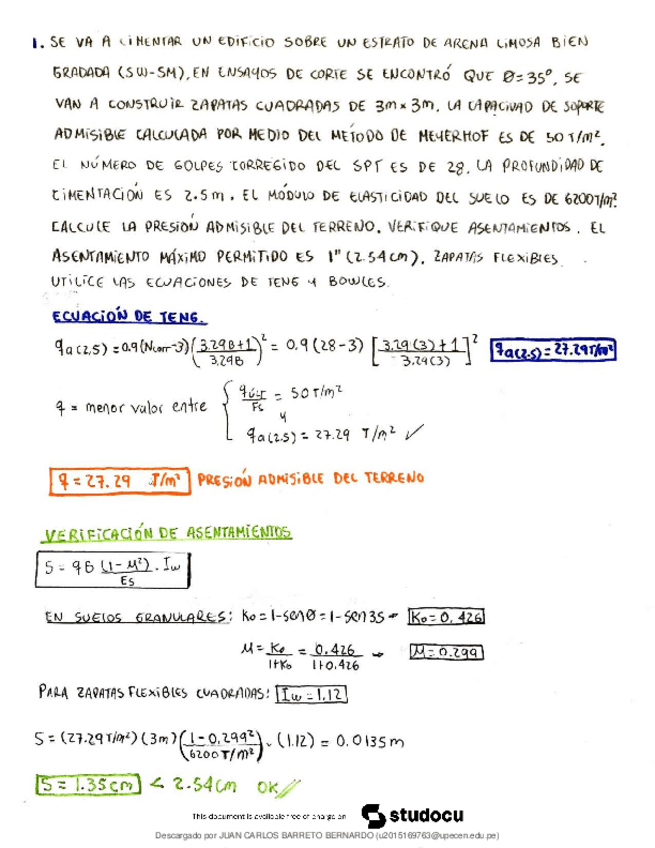 1. SE VA A CIMENTAR UN EDIFICIO SOBRE UN ESTRATO DE ARENA LIMOSA BIEN
GRADADA (SW-SM), EN ENSAYOS DE CORTE SE ENCONTRÓ QUE Ø=35°, SE
VAN A CONSTRUIR ZAPATAS CUADRADAS DE 3m x 3m. LA CAPACIDAD DE SOPORTE
ADMISIBLE CALCULADA POR MEDIO DEL METODO DE MEYERHOF ES DE 50 T/m².
EL NÚMERO DE GOLPES CORREGIDO DEL SPT ES DE 28. LA PROFUNDIDAD DE
CIMENTACIÓN ES 2.5m. EL MÓDULO DE ELASTICIDAD DEL SUELO ES DE 6200T/m².
CALCULE LA PRESIÓN ADMISIBLE DEL TERRENO. VERIFIQUE ASENTAMIENTOS. EL
ASENTAMIENTO MÁXIMO PERMITIDO ES 1" (2.54cm). ZAPATAS FLEXIBLES.
UTILICE LAS ECUACIONES DE TENG Y BOWLES.
ECUACIÓN DE TENG.
qa(2.5) = 0.9(Ncorr-3)(3.29B+1/3.29B)² = 0.9(28-3)[3.29(3)+1/3.29(3)]² qa(2.5)=27.29T/m²
q = menor valor entre { qULT/FS = 50T/m²
y
qa(2.5) = 27.29 T/m² ✓
q = 27.29 T/m² PRESIÓN ADMISIBLE DEL TERRENO
VERIFICACIÓN DE ASENTAMIENTOS
S = qB (1-μ²)/Es . Iw
EN SUELOS GRANULARES: Ko = 1-senØ = 1-sen35 → Ko = 0.426
μ = Ko/1+Ko = 0.426/1+0.426 → μ=0.299
PARA ZAPATAS FLEXIBLES CUADRADAS: Iw = 1.12
S = (27.29T/m²)(3m)(1-0.299²/6200T/m²).(1.12) = 0.0135m
S = 1.35cm < 2.54cm OK//
This document is available free of charge on studocu
Descargado por JUAN CARLOS BARRETO BERNARDO (u2015169763@upecen.edu.pe)